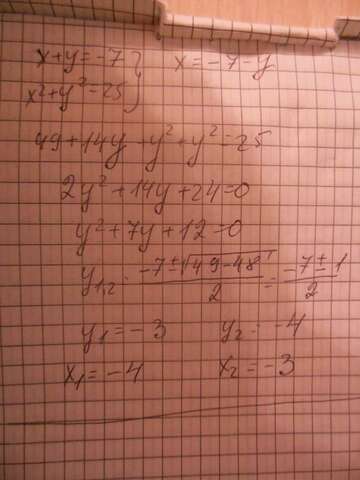 x+y=-7 } x=-7-y
x²+y²=25
49+14y+y²+y²=25
2y²+14y+24=0
y²+7y+12=0
y₁,₂ = (-7±√(49-48))/2 = (-7±1)/2
y₁=-3 y₂=-4
x₁=-4 x₂=-3